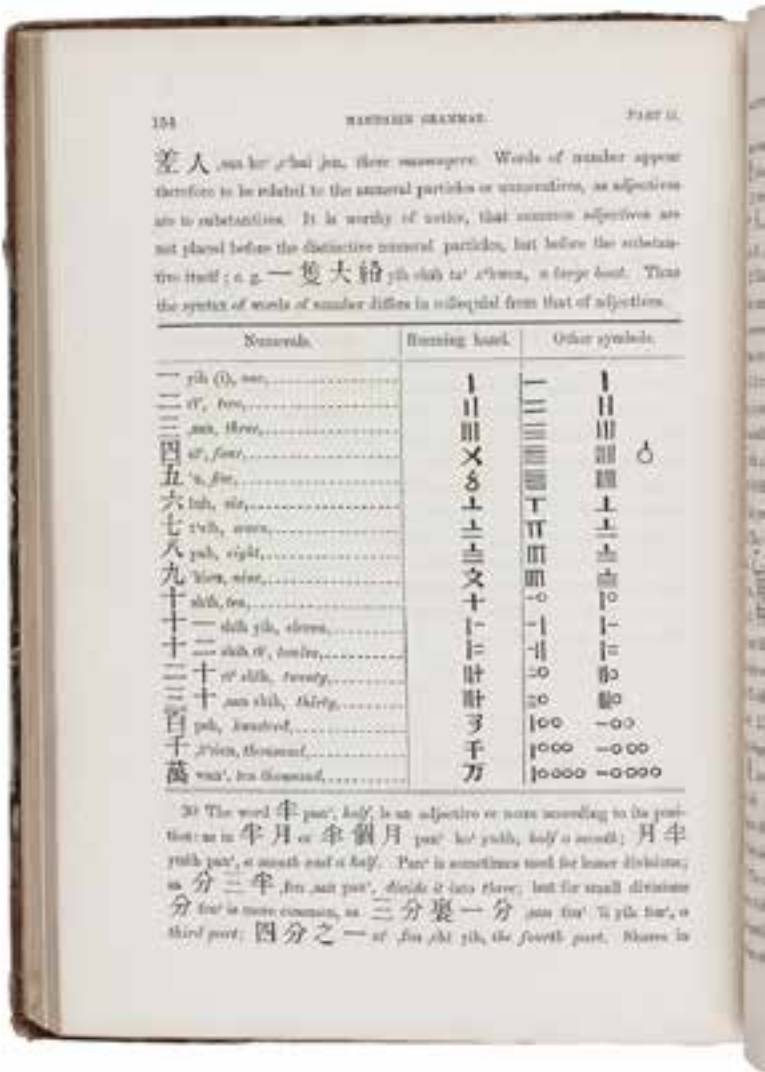 154 MANDARIN GRAMMAR. PART II.
差人 ,san ko' ,c'hai jen, three messengers. Words of number appear
therefore to be related to the numeral particles or numeratives, as adjectives
are to substantives. It is worthy of notice, that common adjectives are
not placed before the distinctive numeral particles, but before the substan-
tive itself; e. g. 一隻大船 yih chih ta' c'hwen, a large boat. Thus
the syntax of words of number differs in colloquial from that of adjectives.
Numerals. Running hand. Other symbols.
一 yih (i), one, 〡 一 〡
二 rï', two, 〢 二 〢
三 ,san, three, 〣 三 〣
四 sï', four, 〤
五 'u, five, 〥
六 luh, six, 〦 〦
七 t'sih, seven, 〧 〧
八 pah, eight, 〨 〨
九 'kieu, nine, 文
十 shih, ten, 十 –o |o
十一 shih yih, eleven, |– –| |–
十二 shih rï', twelve, |= |=
二十 rï' shih, twenty, =o
三十 ,san shih, thirty,
百 peh, hundred, |oo –oo
千 ,t'sien, thousand, 千 |ooo –ooo
萬 wan', ten thousand, 万 |oooo –oooo
The word 半 pan', half, is an adjective or noun according to its posi-
tion: as in 半月 or 半個月 pan' ko' yueh, half a month; 月半
yueh pan', a month and a half. Pan' is sometimes used for lesser divisions;
as 分三半 ,fen ,san pan', divide it into three; but for small divisions
分 fen' is more common, as 三分裏一分 ,san fen' 'li yih fen', a
third part; 四分之一 sï' ,fen ,chï yih, the fourth part. Shares in